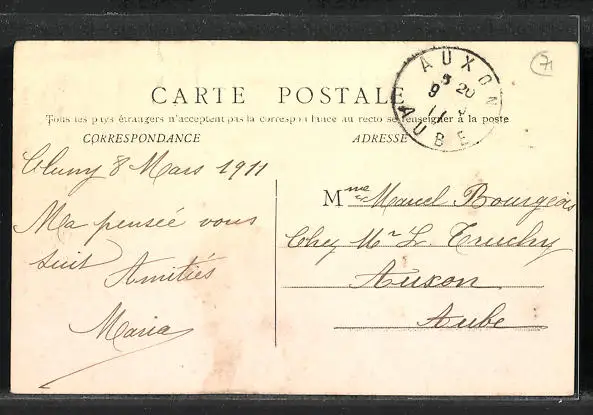 CARTE POSTALE
Tous les pays étrangers n'acceptent pas la correspondance au recto se renseigner à la poste
CORRESPONDANCE
ADRESSE
AUXON
9 20
11
AUBE
7
Cluny 8 Mars 1911
Ma pensée vous
suit Amitiés
Maria
Mme Marcel Bourgeois
Chez Mr L. Truchy
Auxon
Aube